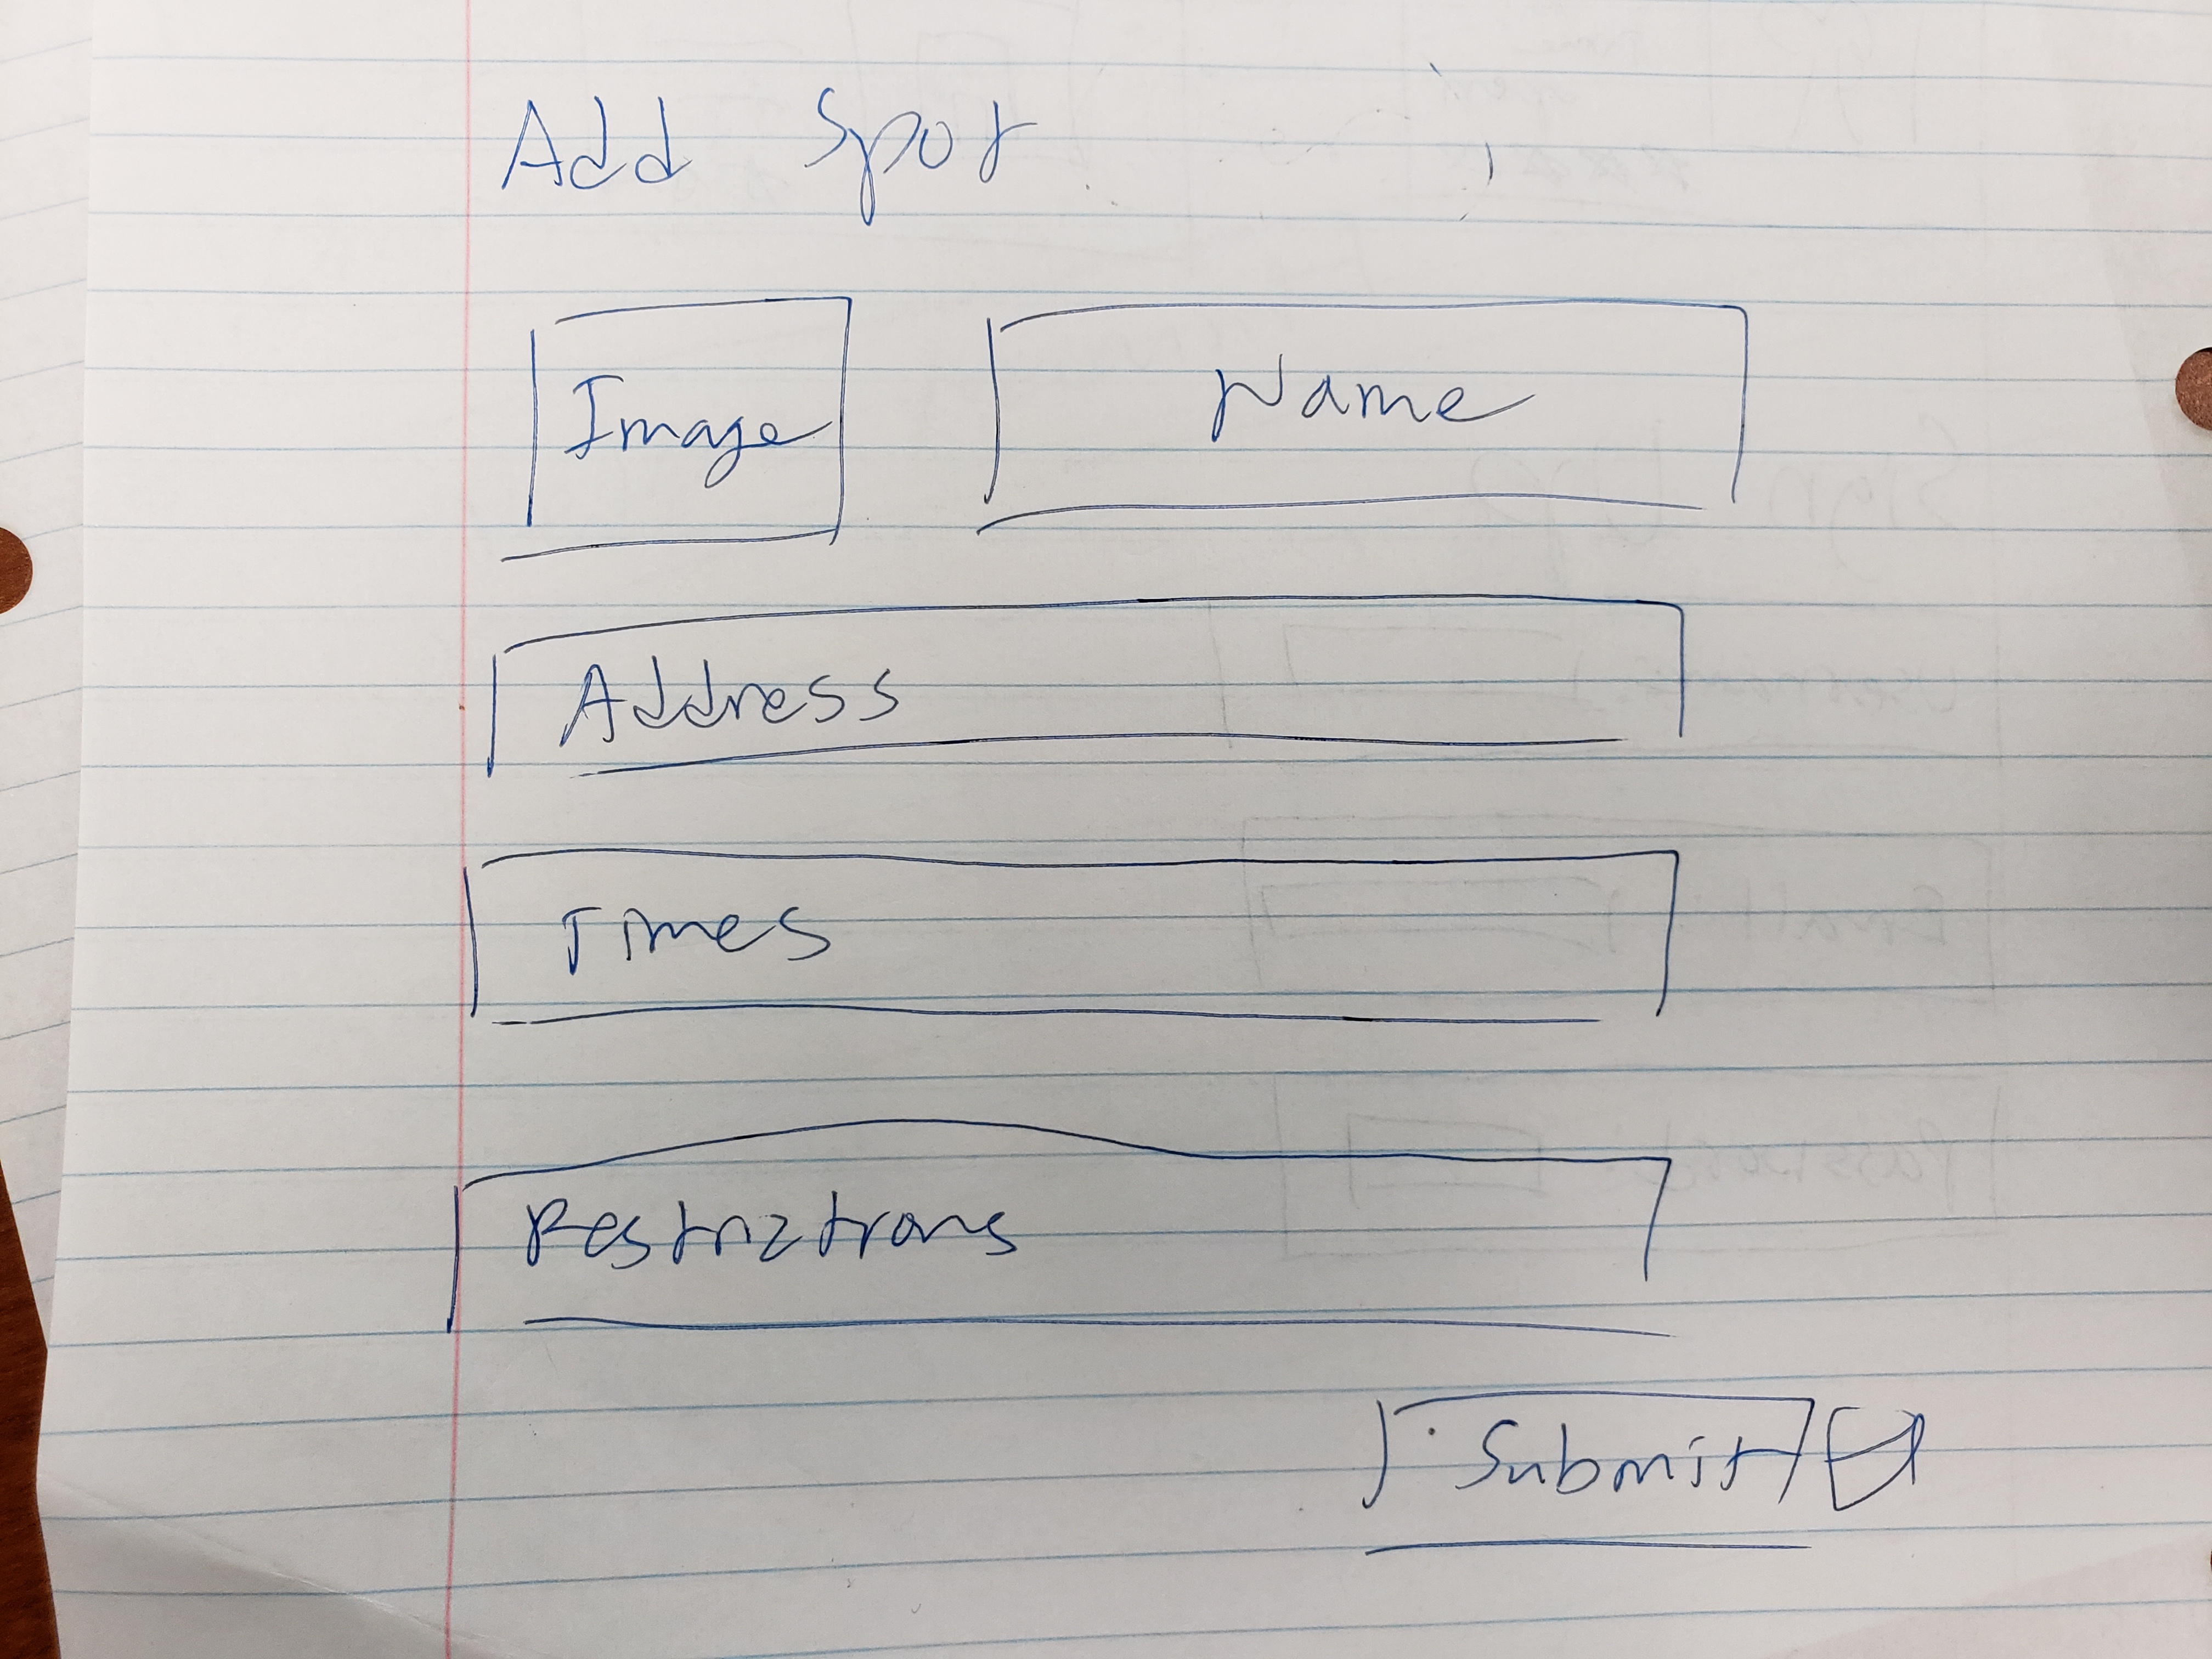 Add Spot
Image Name
Address
Times
Restrictions
Submit